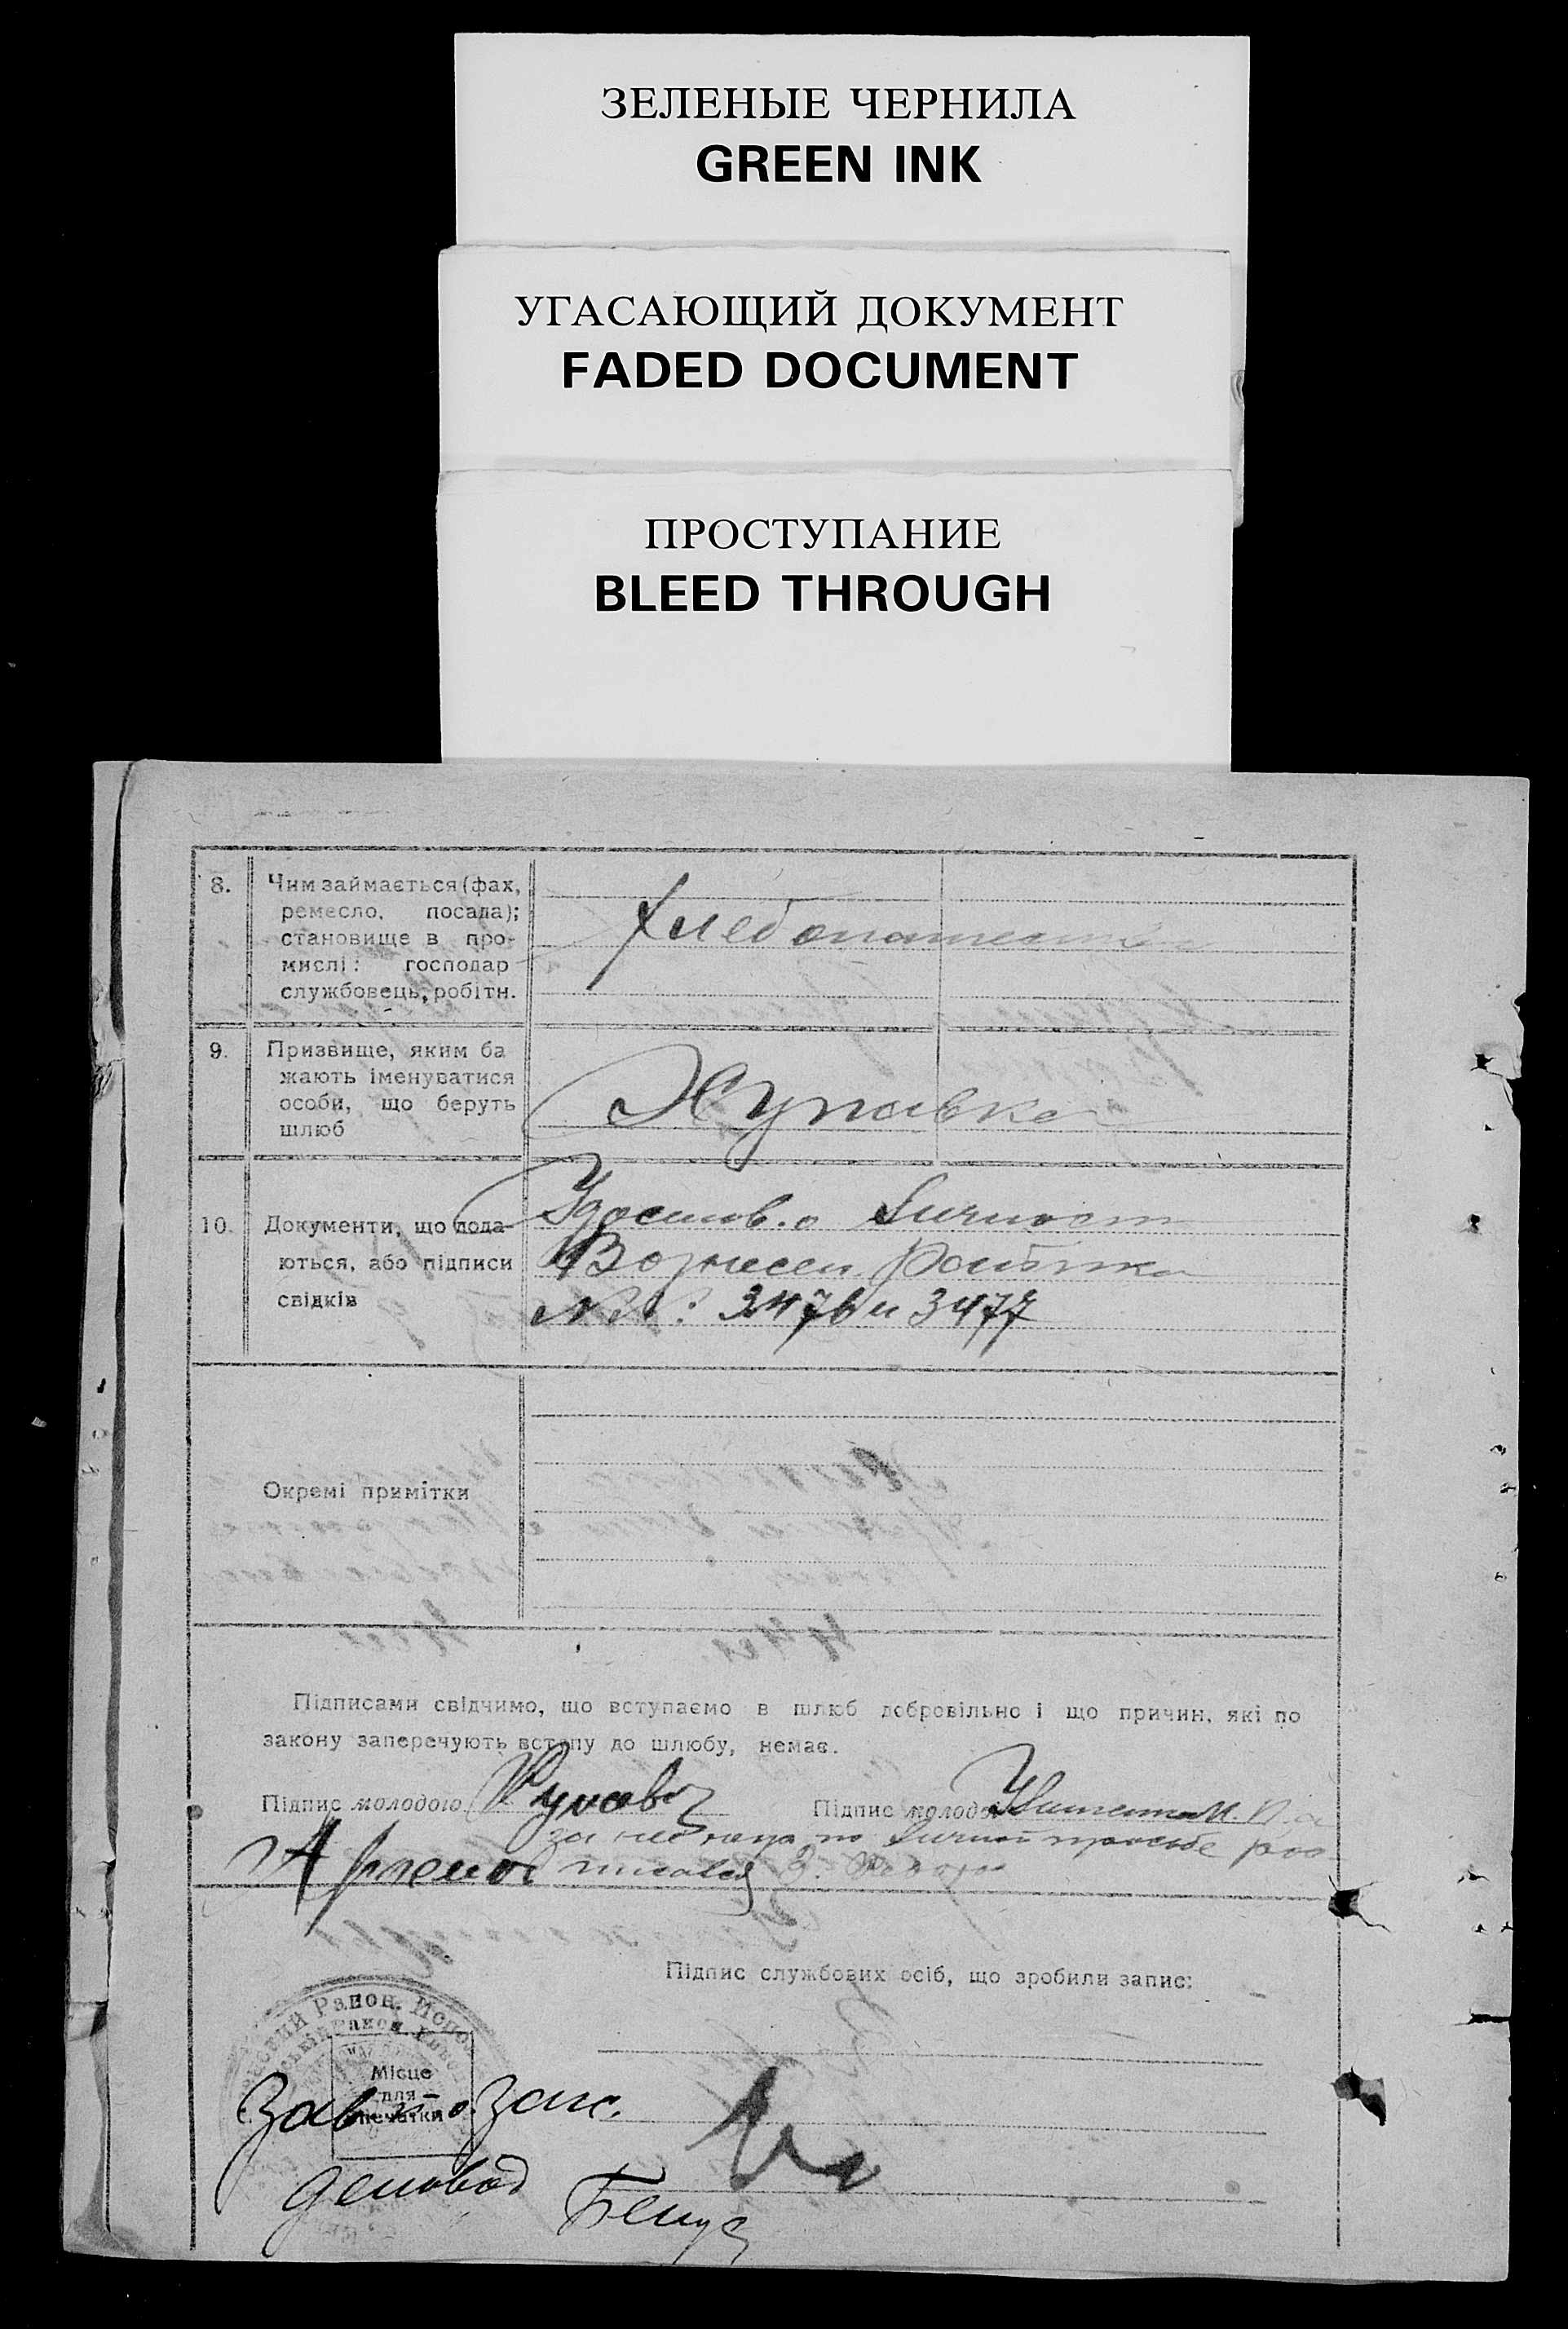 ЗЕЛЕНЫЕ ЧЕРНИЛА
GREEN INK
УГАСАЮЩИЙ ДОКУМЕНТ
FADED DOCUMENT
ПРОСТУПАНИЕ
BLEED THROUGH
8. Чим займається (фах,
ремесло, посада);
становище в про-
мислі: господар
службовець, робітн.
Хлебопашество
9. Призвище, яким ба
жають іменуватися
особи, що беруть
шлюб
10. Документи, що дода-
ються, або підписи
свідків
Удостов. о Личност
Вознесен. Райбтка
№№: 3476 и 3477
Окремі примітки
Підписами свідчимо, що вступаємо в шлюб добровільно і що причин, які по
закону заперечують вступу до шлюбу, немає.
Підпис молодого
Підпис молодої
по личной просьбе рос
писался
Підпис службових осіб, що зробили запис:
Місце
для
печатки
Зав. п/о. Загс.
деловод